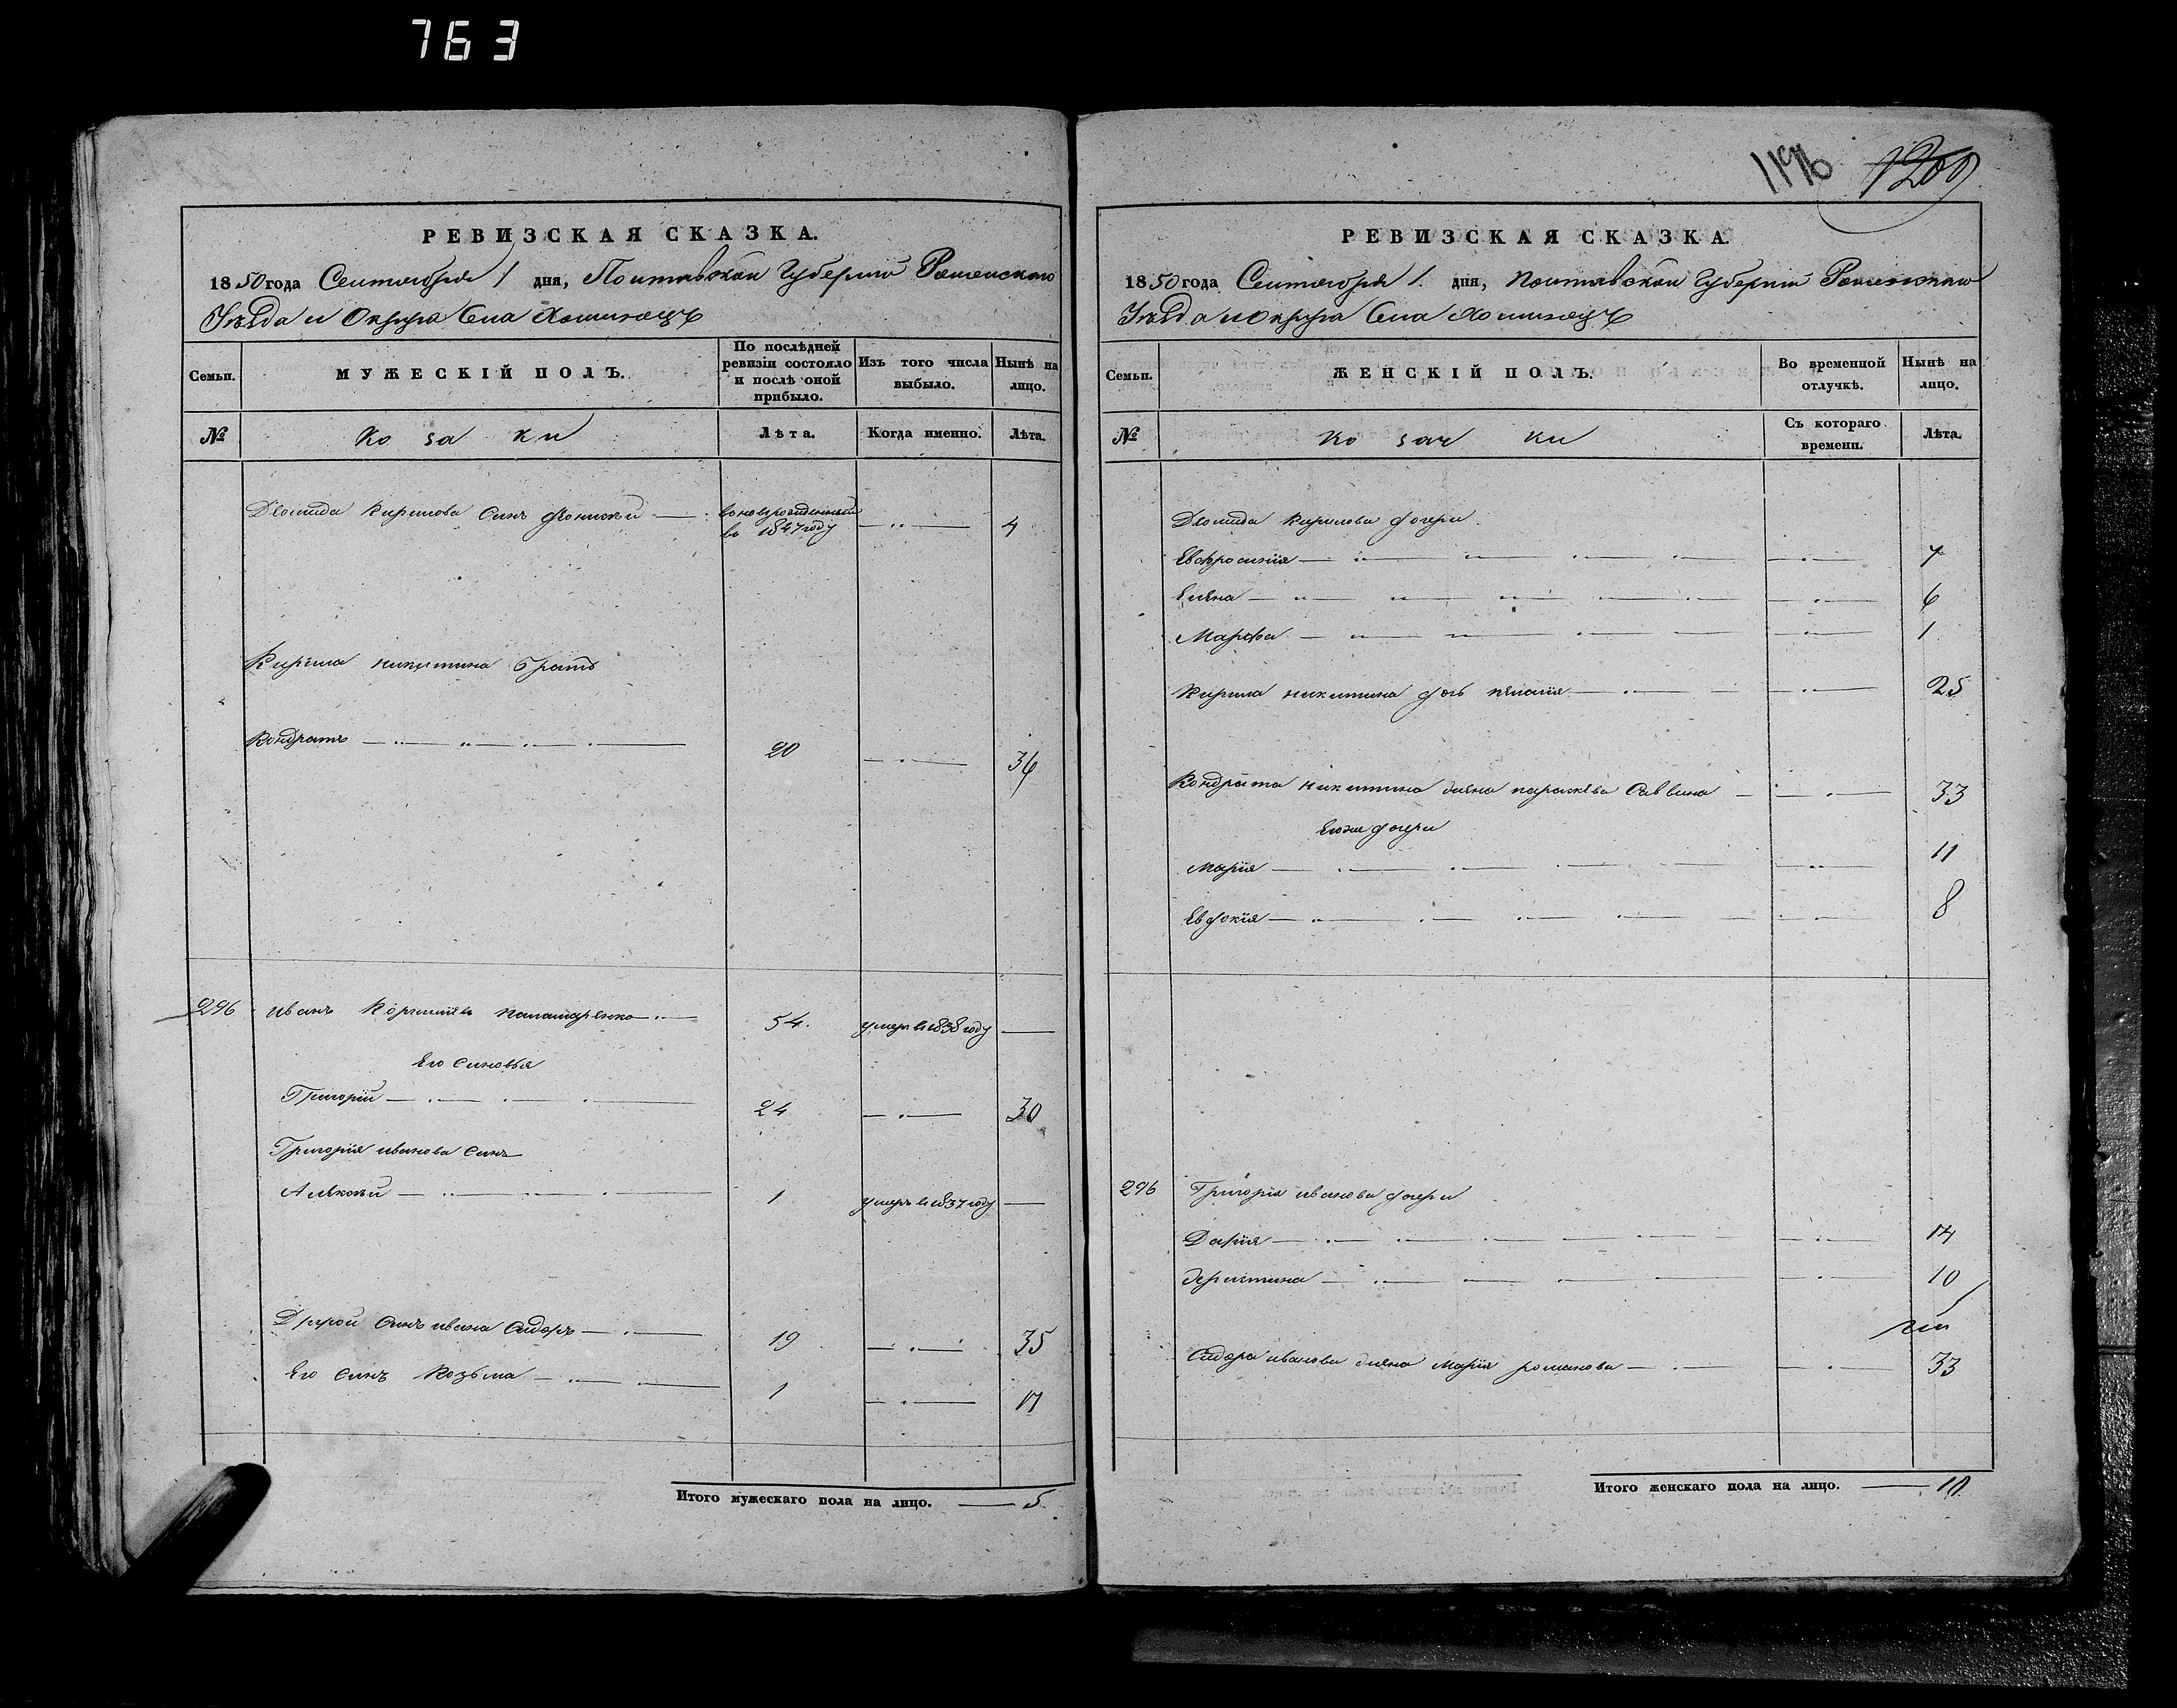 763
РЕВИЗСКАЯ СКАЗКА.
1850 года Сентября 1 дня, Полтавской Губернии Роменского
Уезда и Округа Села Хоминецъ
Семьи.
МУЖЕСКІЙ ПОЛЪ.
По послѣдней ревизіи состояло и послѣ оной прибыло.
Изъ того числа выбыло.
Нынѣ на лицо.
№
Ко за ки
Лѣта.
Когда именно.
Лѣта.
Диомида Кирилова Синъ
въ 1847 году
4
Кирила Никитина братъ
Кондратъ
20
36
296
Иванъ
54.
умеръ в 1838 году
Его Синовья
Григорій
24
30
Григорія Иванова Синъ
Алексѣй
1
умеръ в 1837 году
Другой Синъ Ивана Сидоръ
19
35
Его Синъ Козьма
1
17
Итого мужескаго пола на лицо. 5.
1196 1200
РЕВИЗСКАЯ СКАЗКА.
1850 года Сентября 1. дня, Полтавской Губернии Роменского
Уезда и Округа Села Хоминецъ
Семьи.
ЖЕНСКІЙ ПОЛЪ.
Во временной отлучкѣ.
Нынѣ на лицо.
№
Ко зач ки
Съ котораго времени.
Лѣта.
Диомида Кирилова дочери
Евфросинія
7
Елена
6
Марфа
1
Кирила Никитина дочь Пелагія
25
Кондрата Никитина жена Параскева Саввина
33
Егоже дочери
Марія
11
Евдокія
8
296
Григорія Иванова дочери
Дарія
14
10
Сидора Иванова жена Марія Романова
33
Итого женскаго пола на лицо. 10